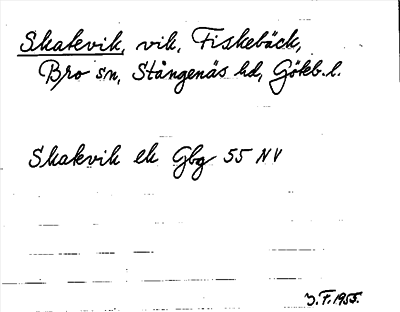 Skakvik, vik, Fiskebäck,
Bro sn, Stångenäs hd, Göteb. l.
Skakvik ek Gbg 55 NV
J. F. 1955.